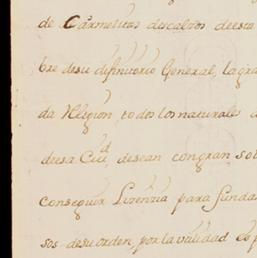 de Carmelitas descalzos deesta
bre desu difinitorio General, la gra
da Religion, todos los naturales
deesa Ciud, desean con gran sol
conseguir Lizenzia para funda
sos desu orden, por la utilidad esp